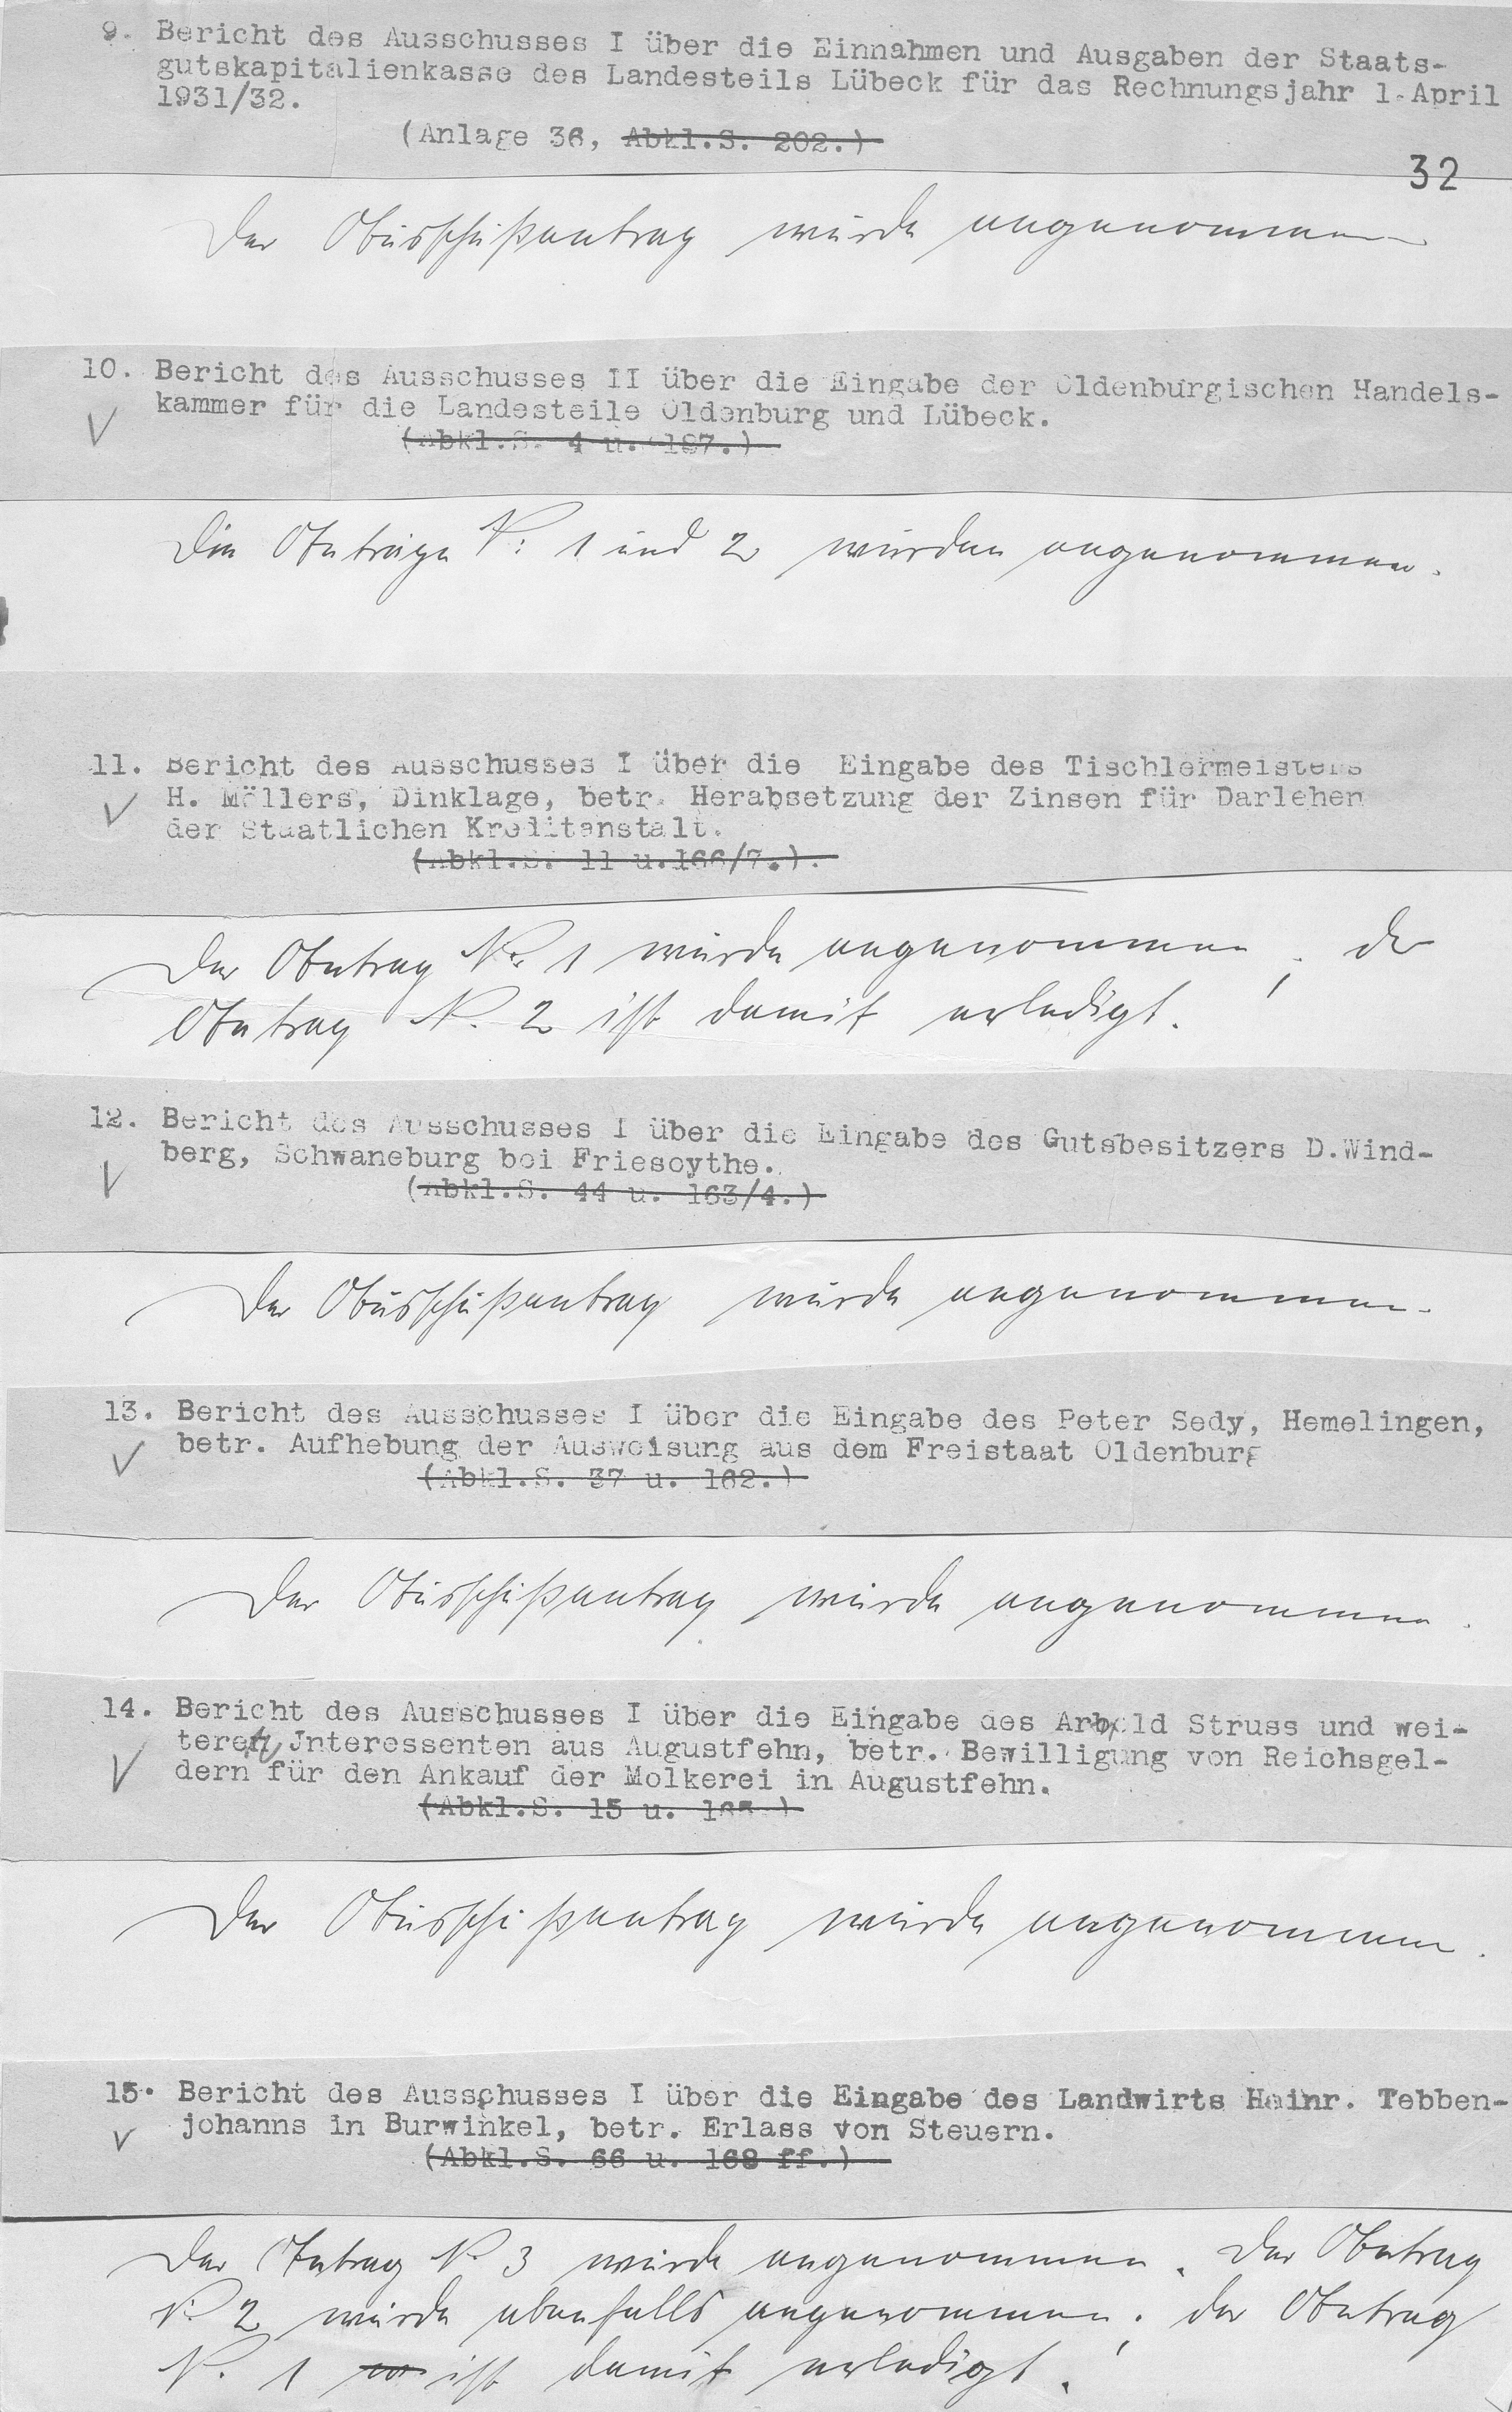 9. Bericht des Ausschusses I über die Einnahmen und Ausgaben der Staats-
gutskapitalienkasse des Landesteils Lübeck für das Rechnungsjahr 1. April
1931/32.
(Anlage 36, Abkl.S. 202.)
32
Der Ausschußantrag wurde angenommen
10. Bericht des Ausschusses II über die Eingabe der Oldenburgischen Handels-
kammer für die Landesteile Oldenburg und Lübeck.
(Abkl.S. 4 u. 187.)
Die Anträge Nr: 1 und 2 wurden angenommen.
11. Bericht des Ausschusses I über die Eingabe des Tischlermeisters
H. Möllers, Dinklage, betr. Herabsetzung der Zinsen für Darlehen
der Staatlichen Kreditanstalt.
(Abkl.S. 11 u.166/7.).
Der Antrag Nr. 1 wurde angenommen; der
Antrag Nr. 2 ist damit erledigt.
12. Bericht des Ausschusses I über die Eingabe des Gutsbesitzers D.Wind-
berg, Schwaneburg bei Friesoythe.
(Abkl.S. 44 u. 163/4.)
Der Ausschußantrag wurde angenommen.
13. Bericht des Ausschusses I über die Eingabe des Peter Sedy, Hemelingen,
betr. Aufhebung der Ausweisung aus dem Freistaat Oldenburg
(Abkl.S. 37 u. 162.)
Der Ausschußantrag wurde angenommen.
14. Bericht des Ausschusses I über die Eingabe des Arnold Struss und wei-
teren Jnteressenten aus Augustfehn, betr. Bewilligung von Reichsgel-
dern für den Ankauf der Molkerei in Augustfehn.
(Abkl.S. 15 u. 165.)
Der Ausschußantrag wurde angenommen.
15. Bericht des Ausschusses I über die Eingabe des Landwirts Heinr. Tebben-
johanns in Burwinkel, betr. Erlass von Steuern.
(Abkl.S. 66 u. 168 ff.)
Der Antrag Nr. 3 wurde angenommen. Der Antrag
Nr. 2 wurde ebenfalls angenommen; der Antrag
Nr. 1 ist damit erledigt.